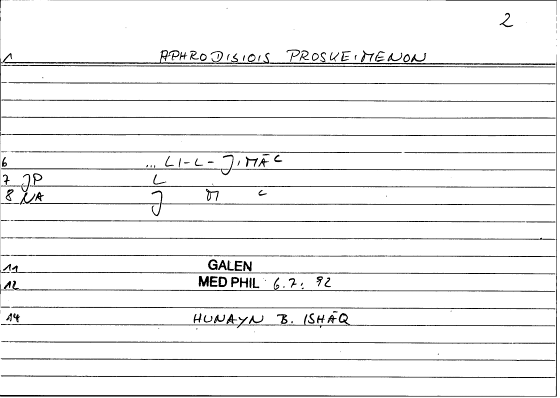 2
1 APHRODISIOIS PROSKEIMENON
6 ... LI-L-JIMĀC
7 JP L
8 NA J M C
11 GALEN
12 MED PHIL 6.7. 92
14 HUNAYN B. ISḤĀQ